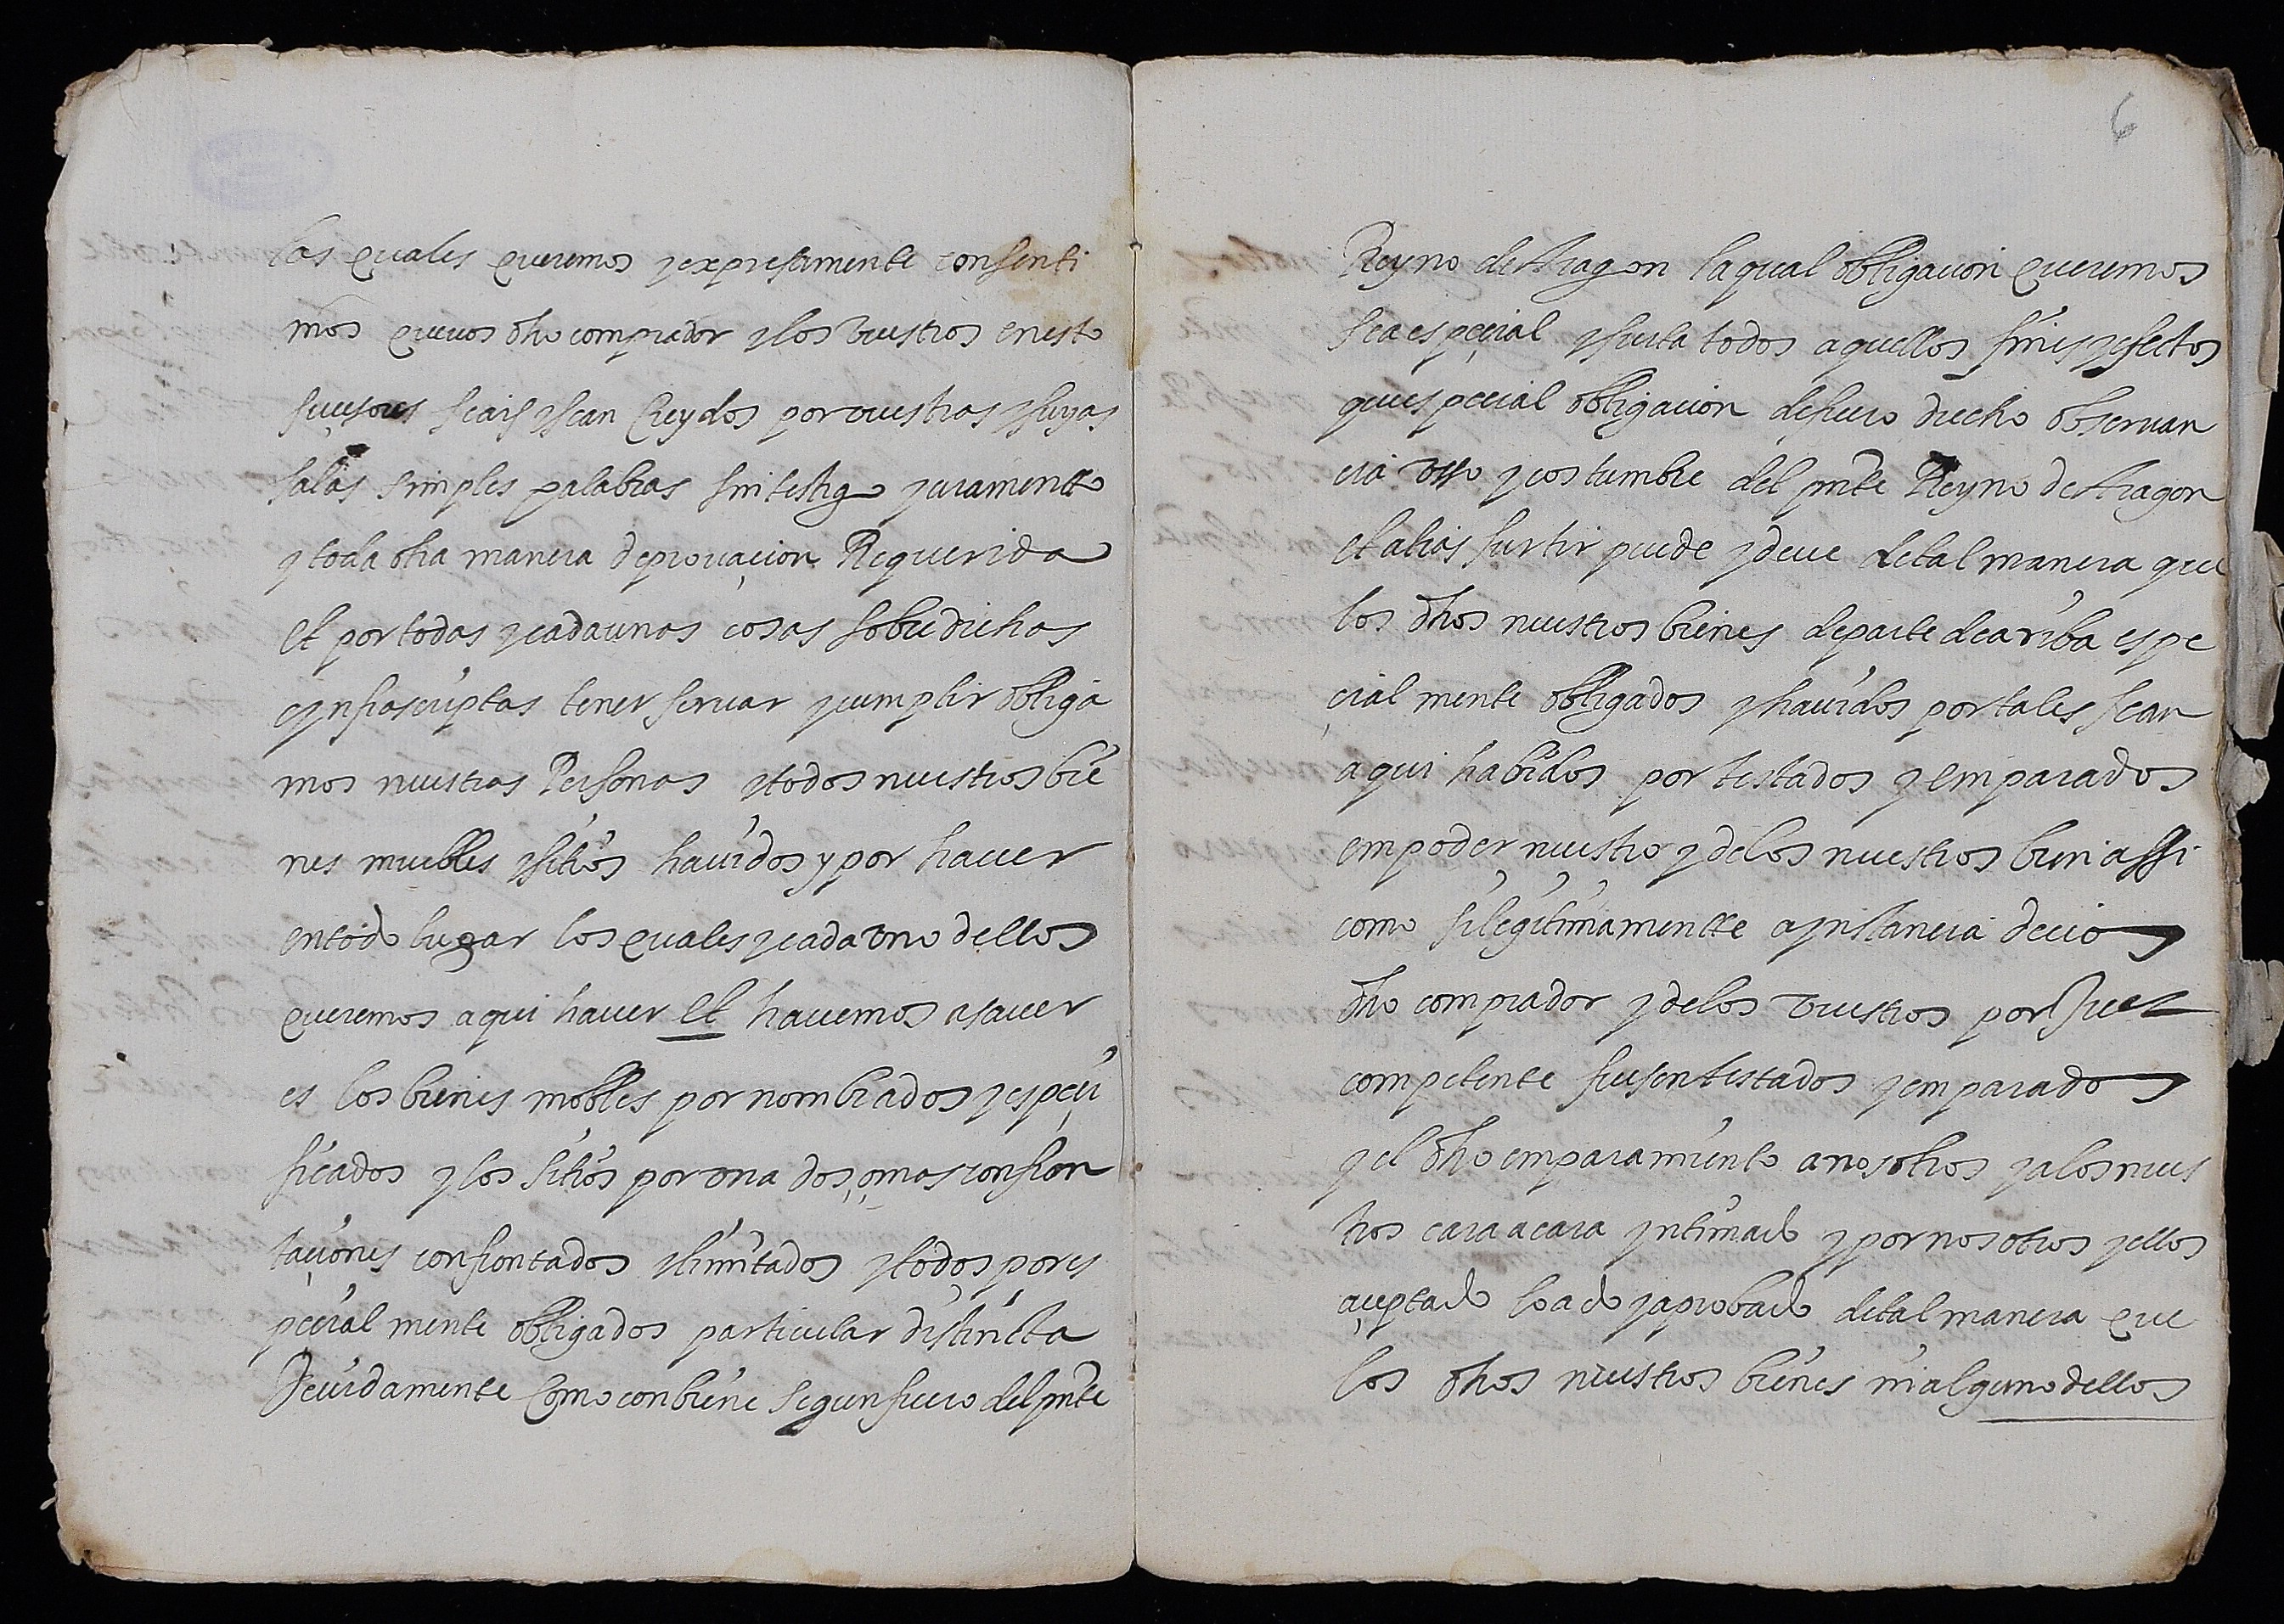 las quales queremos y expresamente consenti
mos que vos dho comprador y los vuestros en esto
sucesores seais y sean creydos por vuestras y suyas
solas simples palabras sin testigo y uramento
y toda otra manera de provaçion Requerida
et por todas y cada unas cosas sobredichas
e ynfrascriptas tener servar y cumplir obliga
mos nuestras Personas y todos nuestros bie
nes muebles y sitios havidos y por haver
en todo lugar los quales y cada uno dellos
queremos aqui haver et havemos asaver
es los bienes mobles por nombrados y espeçi
ficados y los sitios por una dos o mas confron
taçiones confrontados y limitados y todos por es
peçial mente obligados particular distincta
Devidamente Como conbiene segun fuero del pnte
6
Reyno de Aragon la qual obligacion queremos
sea espeçial y surta todos aquellos fines y efectos
que special obligacion de fuero drecho observan
cia usso y costumbre del pnte Reyno de Aragon
et alias surtir puede y deve de tal manera que
los dhos nuestros bienes de parte de arriba espe
çial mente obligados y havidos por tales sean
aqui habidos por testados y emparados
em poder nuestro y de los nuestros bien assi
como si legitimamentte a ynstancia de vos
dho comprador y de los vuestros por Juez
competente fuesen testados y emparados
y el dho emparamiento a nosotros y a los nues
tros cara a cara yntimado y por nosotros y ellos
açeptado loado y aprobado de tal manera que
los dhos nuestros bienes ni alguno dellos